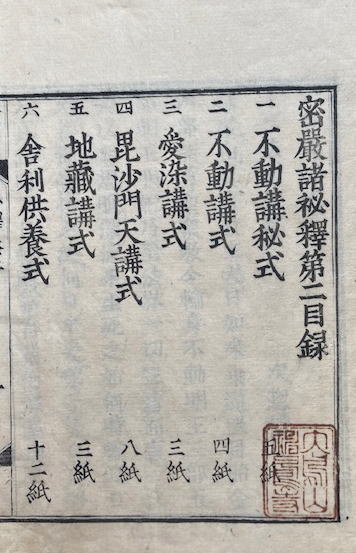 密嚴諸秘釋第二目録
一 不動講秘式 五紙
二 不動講式 四紙
三 愛染講式 三紙
四 毘沙門天講式 八紙
五 地藏講式 三紙
六 舍利供養式 十二紙